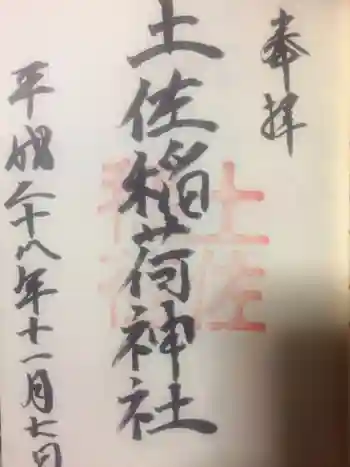 奉拝
土佐稲荷神社
平成二十八年十一月七日
土佐
稲荷